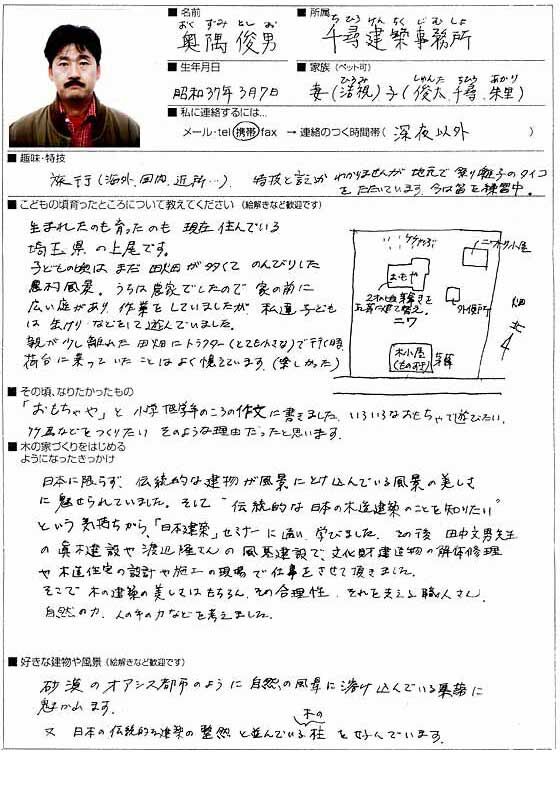 ■ 名前
■ 所属
おくずみ としお
奥隅 俊男
ちひろ けんちく じむしょ
千尋建築事務所
■ 生年月日
■ 家族（ペット可）
昭和37年3月7日
妻（浩視）子（俊太、千尋、朱里）
ひろみ しゅんた ちひろ あかり
■ 私に連絡するには…
メール・tel・携帯・fax → 連絡のつく時間帯（深夜以外）
■ 趣味・特技
旅行（海外、国内、近所…）、特技と言えるかわかりませんが地元で祭り囃子のタイコ
をたたいています。今は笛を練習中。
■ こどもの頃育ったところについて教えてください（絵解きなど歓迎です）
生まれたのも育ったのも 現在 住んでいる
埼玉県 の上尾です。
子どもの頃は まだ 田畑が 多くて のんびりした
農村風景。うちは農家でしたので 家の前に
広い庭があり 作業をしていましたが 私達子ども
は 生けりなどをして遊んでいました。
親が少し離れた 田畑にトラクター（とても小さな）で行く時
荷台に乗っていたことはよく憶えています。（楽しかった）
ケヤキ
ニワトリ小屋
おもや
外便所
ニワ
木小屋
（ものおき）
畑
北
■ その頃、なりたかったもの
「おもちゃや」と 小学低学年のころの作文に書きました。いろいろなおもちゃで遊びたい、
竹馬などをつくりたい そのような理由だったと思います。
■ 木の家づくりをはじめる
ようになったきっかけ
日本に限らず、伝統的な建物が風景にとけ込んでいる風景の美しさ
に魅せられていました。そして“伝統的な日本の木造建築のことを知りたい”
という気持ちから、「日本建築」セミナーに通い、学びました。その後 田中文男先生
の 真木建設や 渡辺隆さんの 風基建設で、文化財建造物の解体修理
や木造住宅の設計や施工の現場で仕事をさせて頂きました。
そこで 木の建築の美しさはもちろん、その合理性、それを支える職人さん、
自然の力、人の手の力などを考えました。
■ 好きな建物や風景（絵解きなど歓迎です）
砂漠のオアシス都市のように 自然の風景に溶け込んでいる集落に
魅かれます。
又 日本の伝統的な建築の整然と並んでいる木の柱を好んでいます。